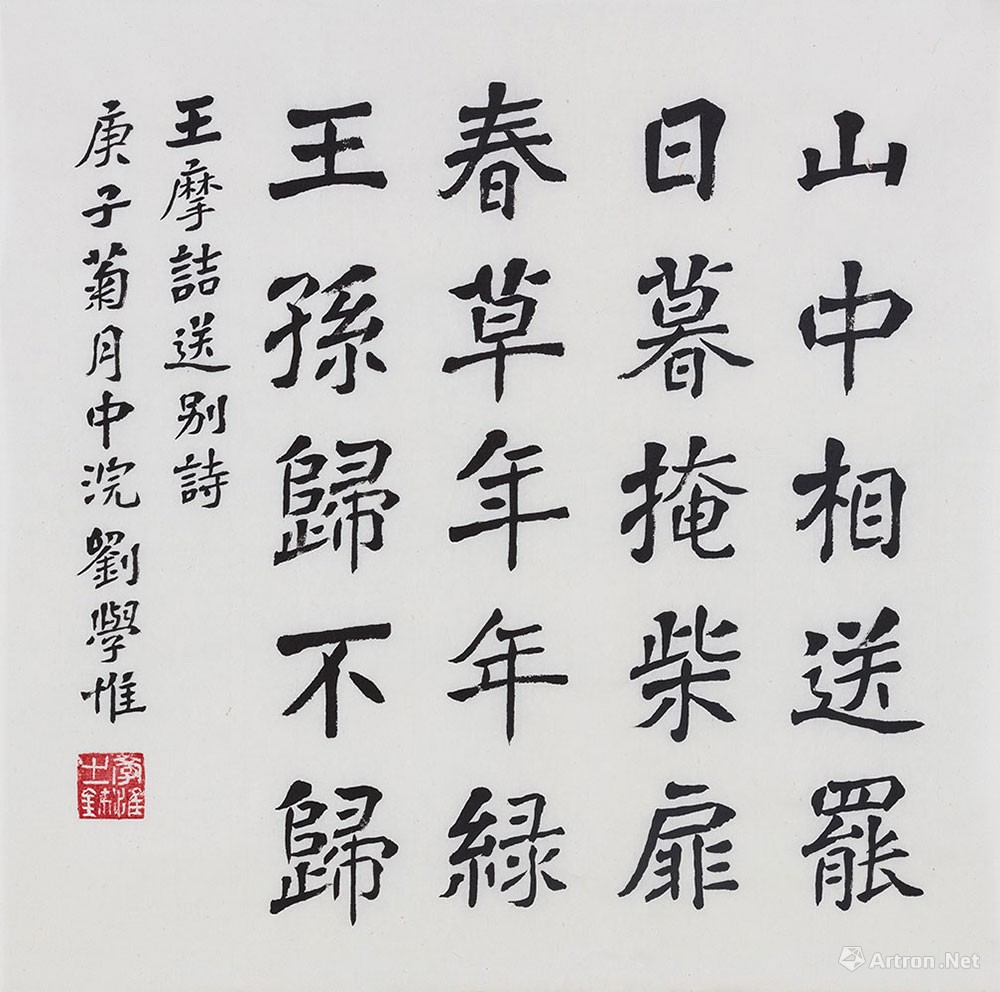 山中相送罷
日暮掩柴扉
春草年年緑
王孫歸不歸
王摩詰送别詩
庚子菊月中浣劉學惟
Artron.Net